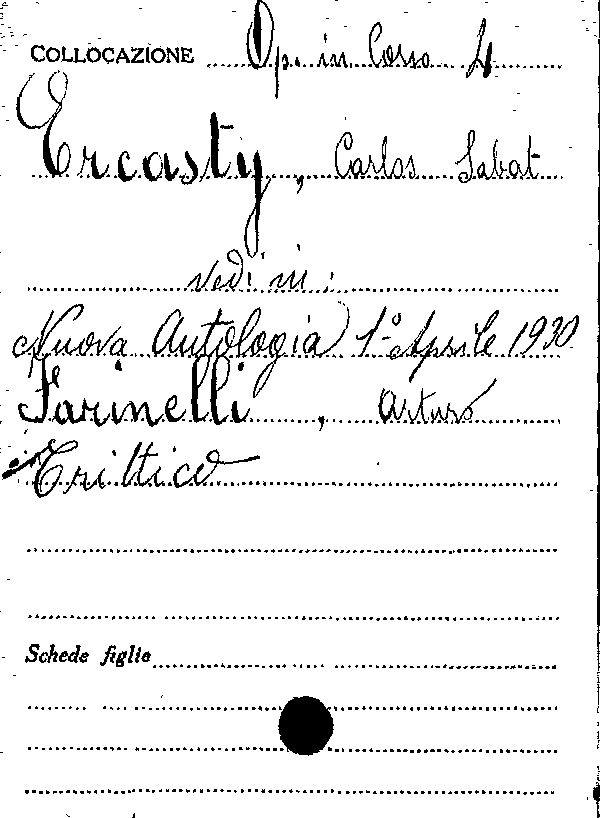 COLLOCAZIONE Op. in Corso 4
Ercasty, Carlos Sabat
vedi in:
Nuova Antologia 1º Aprile 1930
Farinelli, Arturo
Trittico
Schede figlie